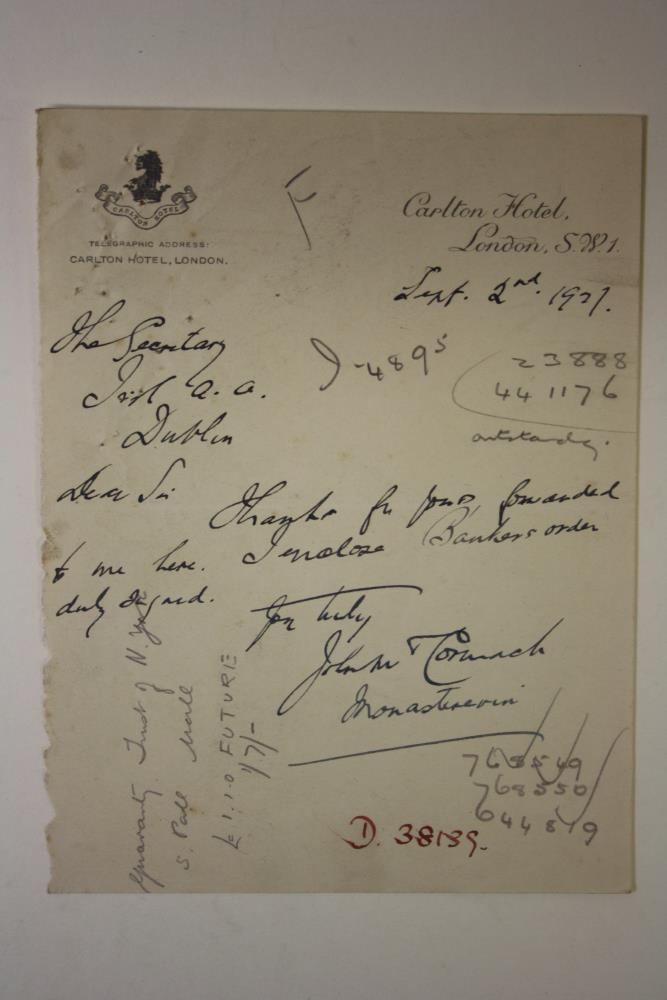 CARLTON HOTEL
TELEGRAPHIC ADDRESS:
CARLTON HOTEL, LONDON.
Carlton Hotel,
London, S.W.1.
Sept. 2nd 1927.
The Secretary
Irish A. A.
Dublin
I-4895
23888
441176
outstanding.
Dear Sir
Thanks for yours forwarded
to me here. I enclose Bankers order
duly signed.
Yrs truly
John McCormack
Monasterevin
Guaranty Trust of N. York
S. Pall Mall
£1.1.0 FUTURE
17/-
768549
768550
644819
D. 38139.